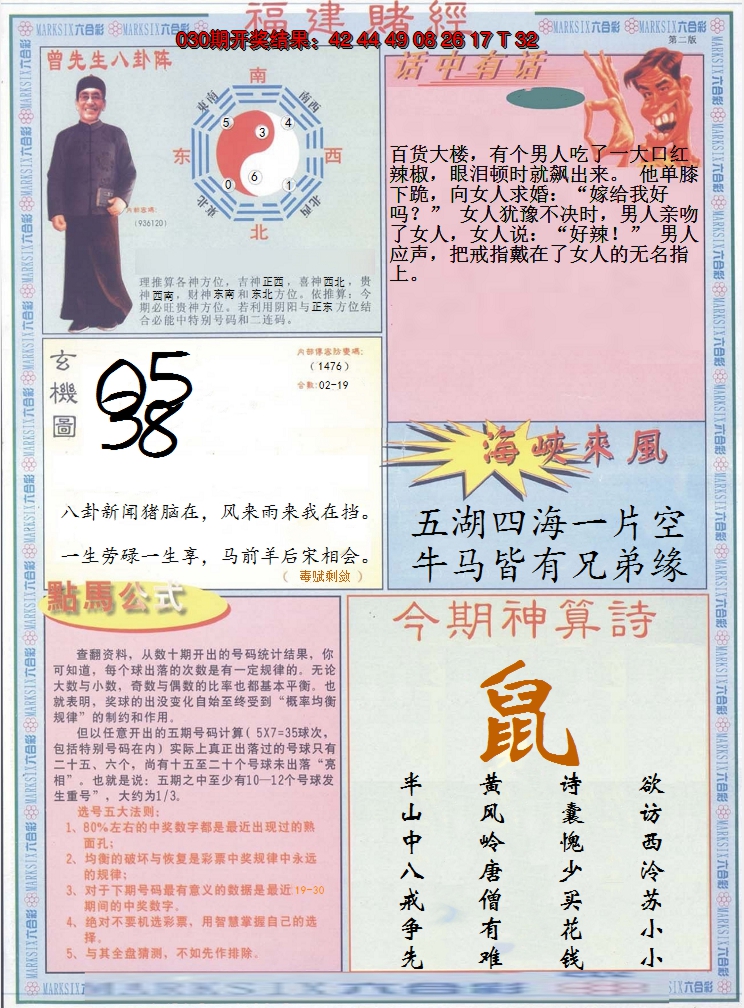 福建賭經
030期开奖结果：42 44 49 08 26 17 T 32
MARKSIX六合彩
第二版
曾先生八卦阵
南
東南
南西
5
4
3
东
西
6
0
1
東北
北西
北
内部密碼:
（936120）
理推算各神方位，吉神正西，喜神西北，贵
神西南，财神东南和东北方位。依推算：今
期必旺贵神方位。若利用阴阳与正东方位结
合必能中特别号码和二连码。
话中有话
百货大楼，有个男人吃了一大口红
辣椒，眼泪顿时就飙出来。 他单膝
下跪，向女人求婚：“嫁给我好
吗？” 女人犹豫不决时，男人亲吻
了女人，女人说：“好辣！” 男人
应声，把戒指戴在了女人的无名指
上。
玄機圖
05
38
内部傳器防雙碼:
（1476）
合数:02-19
八卦新闻猪脑在，风来雨来我在挡。
一生劳碌一生享，马前羊后宋相会。
（ 毒赋剩敛 ）
海峽來風
五湖四海一片空
牛马皆有兄弟缘
點馬公式
查翻资料，从数十期开出的号码统计结果，你
可知道，每个球出落的次数是有一定规律的。无论
大数与小数，奇数与偶数的比率也都基本平衡。也
就表明，奖球的出没变化自始至终受到“概率均衡
规律”的制约和作用。
但以任意开出的五期号码计算( 5X7=35球次，
包括特别号码在内) 实际上真正出落过的号球只有
二十五、六个，尚有十五至二十个号球未出落“亮
相”。也就是说：五期之中至少有10—12个号球发
生重号”，大约为1/3。
选号五大法则:
1、80%左右的中奖数字都是最近出现过的熟
面孔；
2、均衡的破坏与恢复是彩票中奖规律中永远
的规律；
3、对于下期号码最有意义的数据是最近19-30
期间的中奖数字。
4、绝对不要机选彩票，用智慧掌握自己的选
择。
5、与其全盘猜测，不如先作排除。
今期神算詩
鼠
欲访西泠苏小小
诗囊愧少买花钱
黄风岭唐僧有难
半山中八戒争先